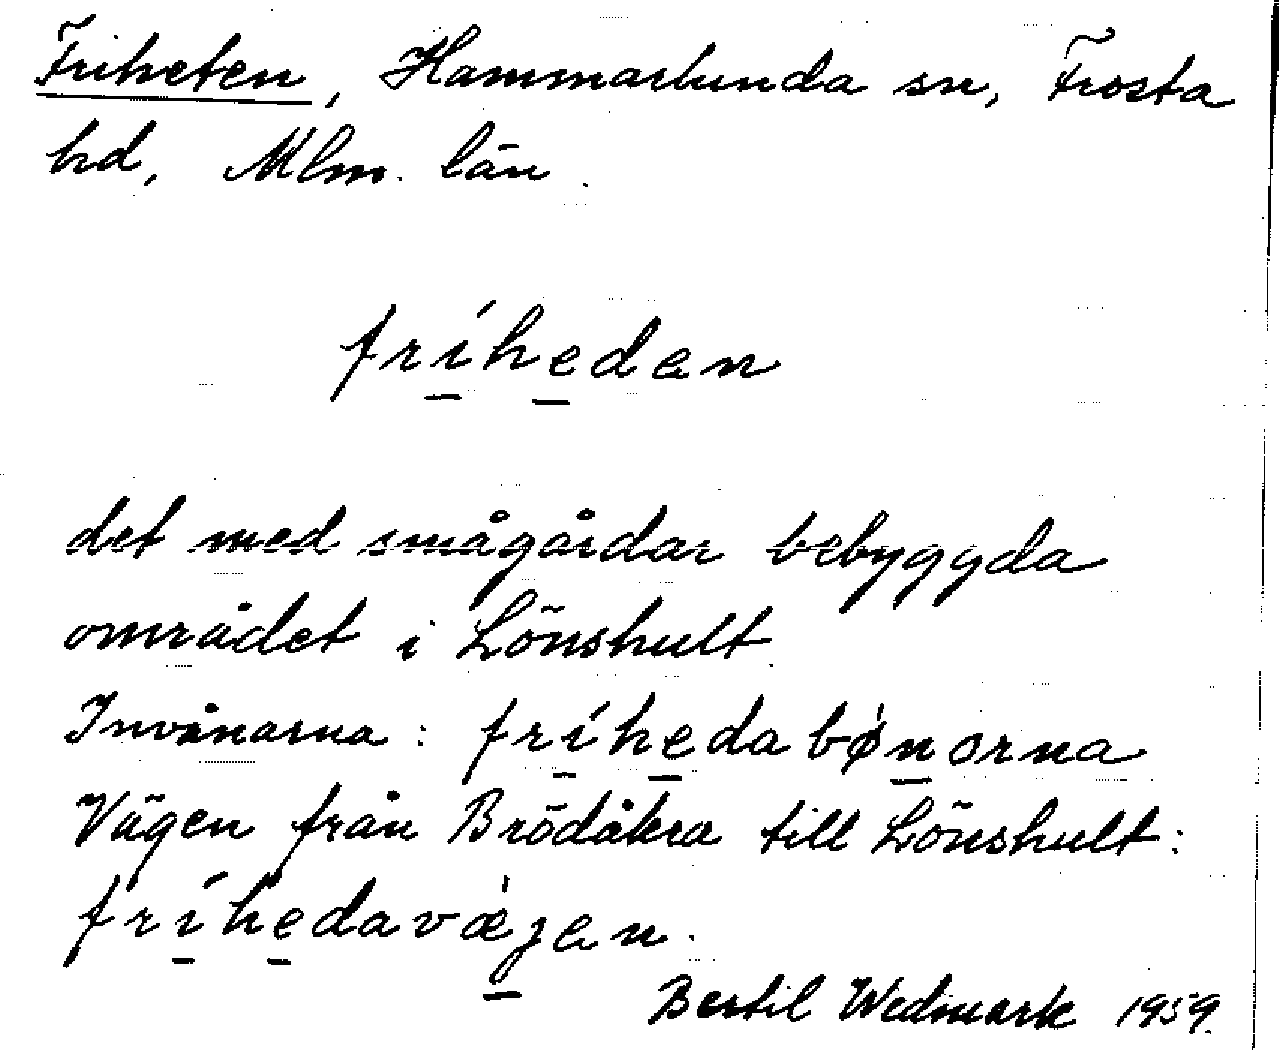 Friheten, Hammarlunda sn, Frosta
hd, Mlm. län.
fríhedən
det med smågårdar bebyggda
området i Lönshult.
Invånarna: fríhedabø̀norna
Vägen från Brödåkra till Lönshult:
fríhedavæ̀jən.
Bertil Wedmark 1959.